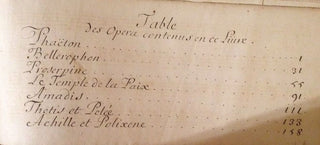 Table
des Opera contenus en ce Livre.
Phaëton 1
Bellerophon 31
Proserpine 55
Le Temple de la Paix 91
Amadis 111
Thetis et Pelée 133
Achille et Polixene 158